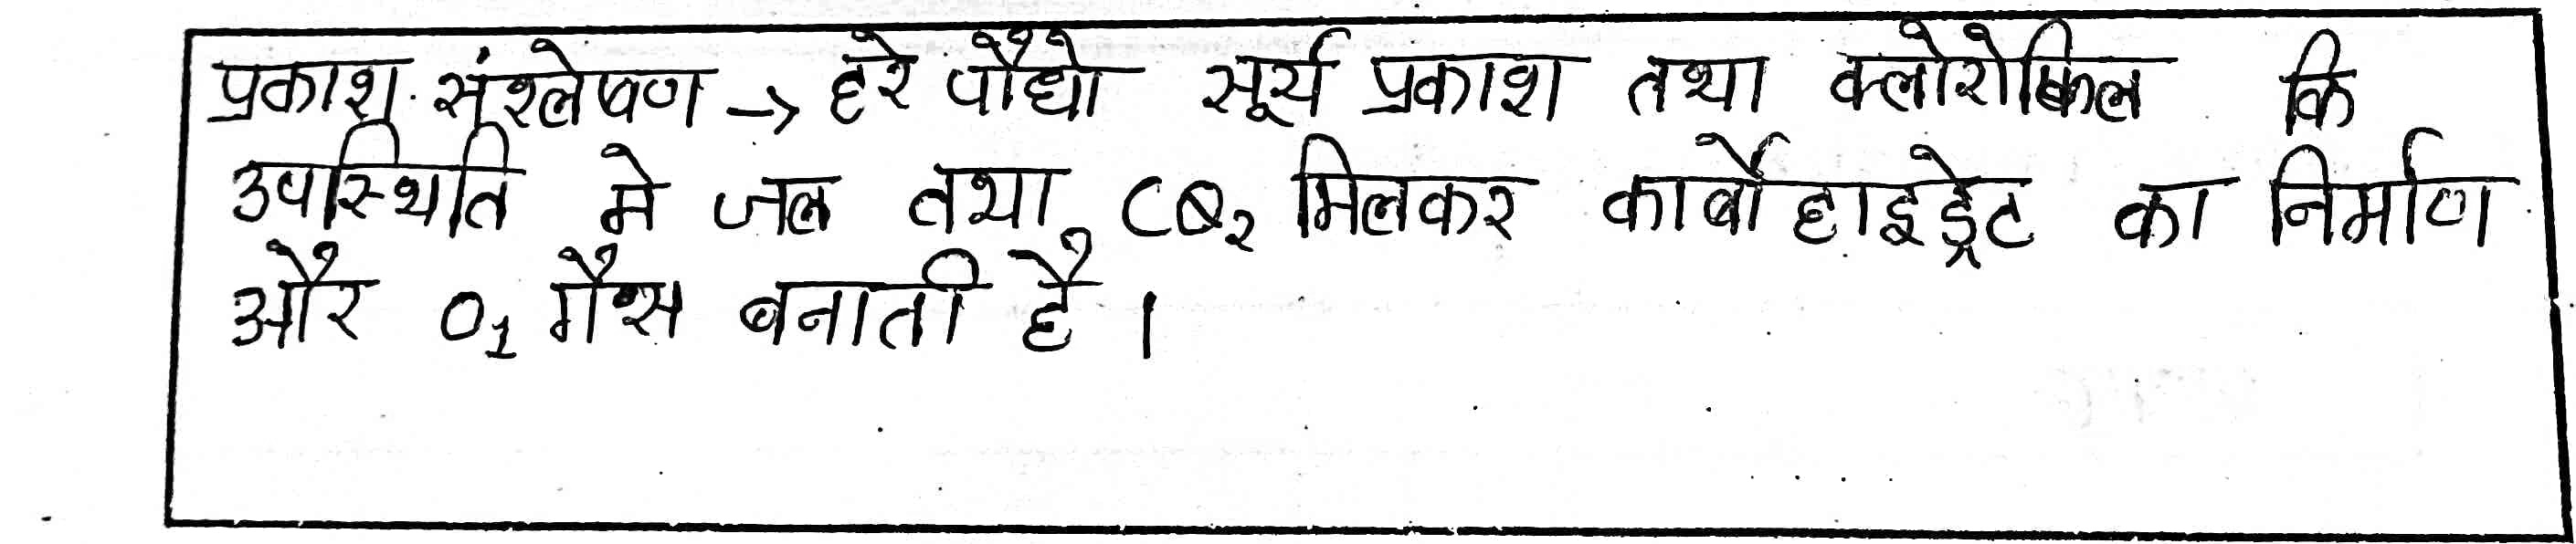 प्रकाश संश्लेषण → हरे पौधो सूर्य प्रकाश तथा क्लोरोफिल कि
उपस्थिति मे जल तथा CO₂ मिलकर कार्बोहाइड्रेट का निर्माण
और O₂ गैस बनाती है।